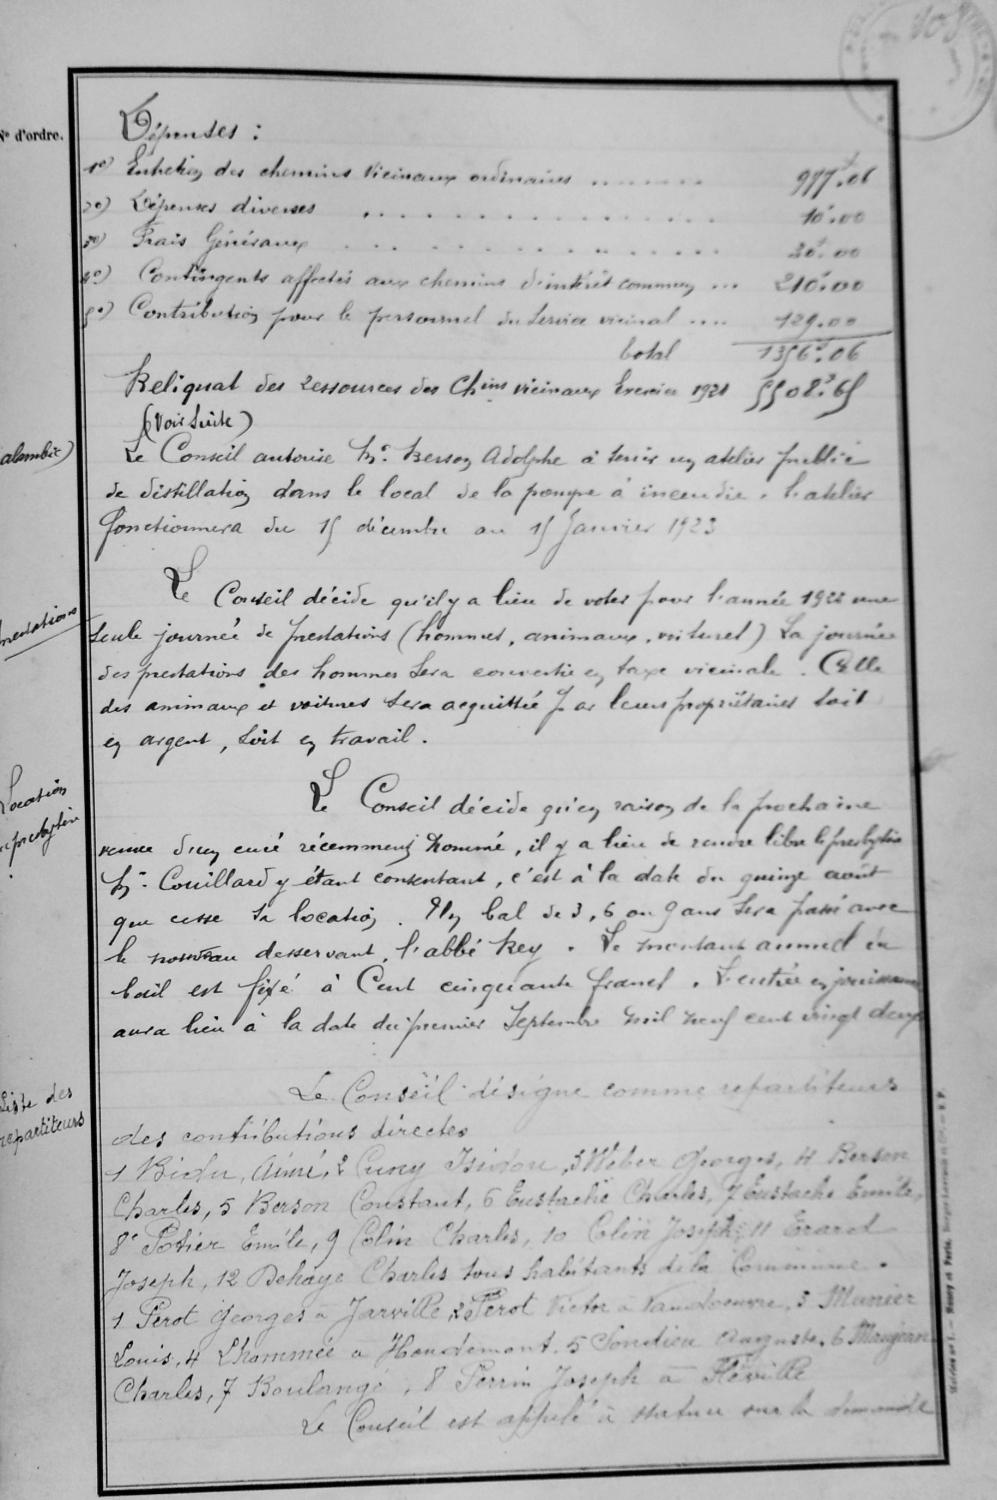 108
N° d'ordre.
Dépenses :
1°) Entretien des chemins vicinaux ordinaires ........ 977f.06
2°) Dépenses diverses ................ 10f.00
3°) Frais Généraux ............ 30f.00
4°) Contingents affectés aux chemins d'intérêt commun ... 210f.00
5°) Contribution pour le personnel du service vicinal .... 129.00
total 1356f.06
Reliquat des ressources des Chins vicinaux Exercice 1921 5508f.65
(Voir suite)
alambic)
Le Conseil autorise Mr. Berson Adolphe à tenir un atelier public
de distillation dans le local de la pompe à incendie. L'atelier
fonctionnera du 15 décembre au 15 Janvier 1923
Prestations
Le Conseil décide qu'il y a lieu de voter pour l'année 1922 une
seule journée de prestations (hommes, animaux, voitures) La journée
des prestations des hommes sera convertie en taxe vicinale. Celle
des animaux et voitures sera acquittée par leurs propriétaires soit
en argent, soit en travail.
Location
presbytère
Le Conseil décide qu'en raison de la prochaine
venue d'un curé récemment nommé, il y a lieu de rendre libre le presbytère
Mr. Couillard y étant consentant, c'est à la date du quinze août
que cesse sa location. Un bal de 3, 6 ou 9 ans sera passé avec
le nouveau desservant, l'abbé Rey. Le montant annuel du
bail est fixé à Cent cinquante francs. L'entrée en jouissance
aura lieu à la date du premier Septembre mil neuf cent vingt deux
Liste des
repartiteurs
Le Conseil désigne comme repartiteurs
des contributions directes
1 Aimé, 2 Cuny Isidore, 3 Weber Georges, 4 Berson
Charles, 5 Berson Constant, 6 Eustache Charles, 7 Eustache Emile,
8° Potier Emile, 9 Colin Charles, 10 Colin Joseph, 11 Erard
Joseph, 12 Dehaye Charles tous habitants de la Commune.
1 Perot Georges à Jarville, 2 Perot Victor à Vandoeuvre, 3 Munier
Louis, 4 Lhommée à Houdemont. 5 Auguste, 6 Maujean
Charles, 7 Boulangé, 8 Perrin Joseph à Fléville
Le Conseil est appelé à statuer sur la demande